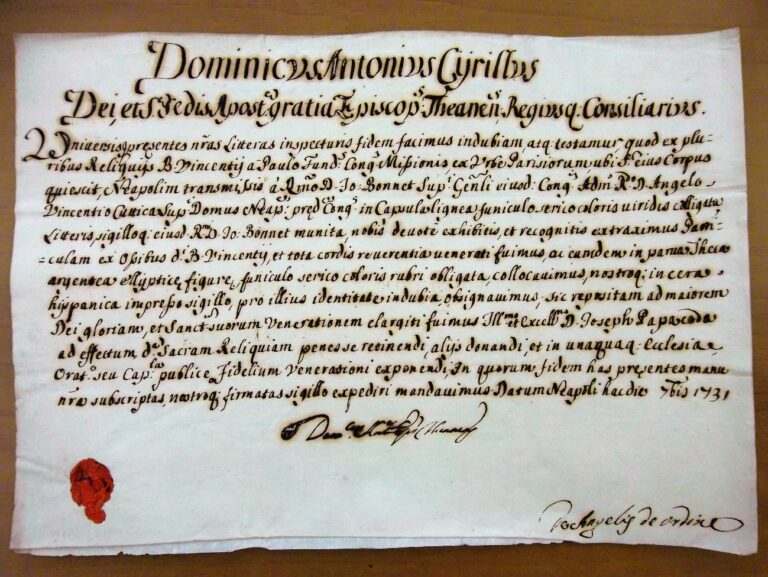 Dominicus Antonius Cyrillus
Dei, et S. Sedis Apost: gratia Episcop: Theanen: Regiusq: Consiliarius.
Universis presentes nr̃as Litteras inspecturis fidem facimus indubiam atq: testamur quod ex plu-
ribus Reliquijs B. Vincentij a Paulo Fund: Conq: Missionis, ex Urbe Parisiorum ubi eius Corpus
quiescit, Neapolim transmissis à D. Jo: Bonnet Sup: Gen̄li eiusd: Conq: Adm: R. D. Angelo
Vincentio Cuttica Sup: Domus Neap: pred: Conq: in Capsula lignea funiculo serico coloris viridis colligata
Litteris, sigilloq: eiusd: R. D. Jo: Bonnet munita, nobis devotè exhibitis, et recognitis extraximus Parti-
culam ex Ossibus d: B. Vincentij, et tota cordis reverentia venerati fuimus, ac eamdem in parva Theca
argentea ellypticę figurę, funiculo serico coloris rubri obligata, collocavimus, nostroq: in cera
hispanica impresso sigillo, pro illius identitate indubia, obsignavimus. sic repositam ad maiorem
Dei gloriam, et Sanct: suorum Venerationem elargiti fuimus Ill: et Excell: D. Joseph Papacoda
ad effectum d: Sacram Reliquiam penes se retinendi, alijs donandi, et in unaquaq: Ecclesia
Orat: seu Cap: publicę Fidelium Venerationi exponendi, In quorum fidem has presentes manu
nr̃a subscriptas, nostroq: firmatas sigillo expediri mandavimus Datum Neapoli hac die 7bris 1731
de Angelis de ordine